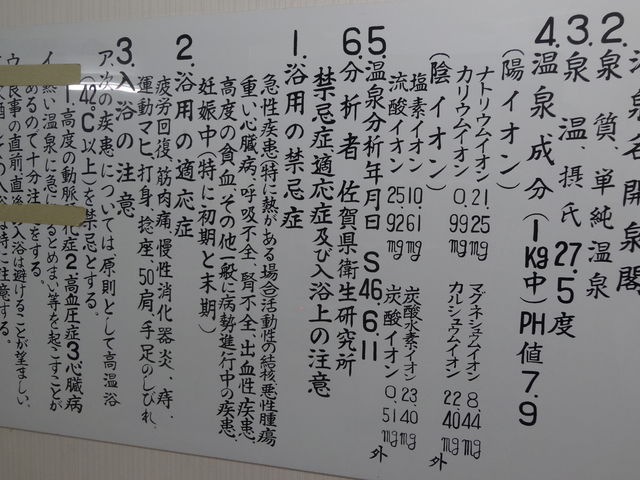 2.温泉名 開泉閣
3.泉質 単純温泉
3.泉温、摂氏 27.5度
4.温泉成分(1kg中)PH値7.9
(陽イオン)
ナトリウムイオン 21.25mg マグネシュウムイオン 8.44mg
カリウムイオン 0.99mg カルシュウムイオン 22.40mg外
(陰イオン)
塩素イオン 10.61mg 炭酸水素イオン 23.40mg
硫酸イオン 25.92mg 炭酸イオン 0.51mg外
5.温泉分析年月日 S46.6.11
6.分析者 佐賀県衛生研究所
禁忌症、適応症及び入浴上の注意
1.浴用の禁忌症
急性疾患(特に熱がある場合活動性の結核、悪性腫瘍
重い心臓病、呼吸不全、腎不全、出血性疾患、
高度の貧血、その他一般に病勢進行中の疾患、
妊娠中(特に初期と末期)
2.浴用の適応症
疲労回復、筋肉痛、慢性消化器炎、痔、
運動マヒ、打身、捻座、50肩、手足のしびれ、
3.入浴の注意
ア.次の疾患については原則として高温浴
(42℃以上)を禁忌とする。
1.高度の動脈 化症2.高血圧症3.心臓病
イ 熱い温泉に急に るとめまい等を起こすことが
あるので十分注 をする。
ウ 食事の直前直後の入浴は避けることが望ましい、
入浴は特に注意する。